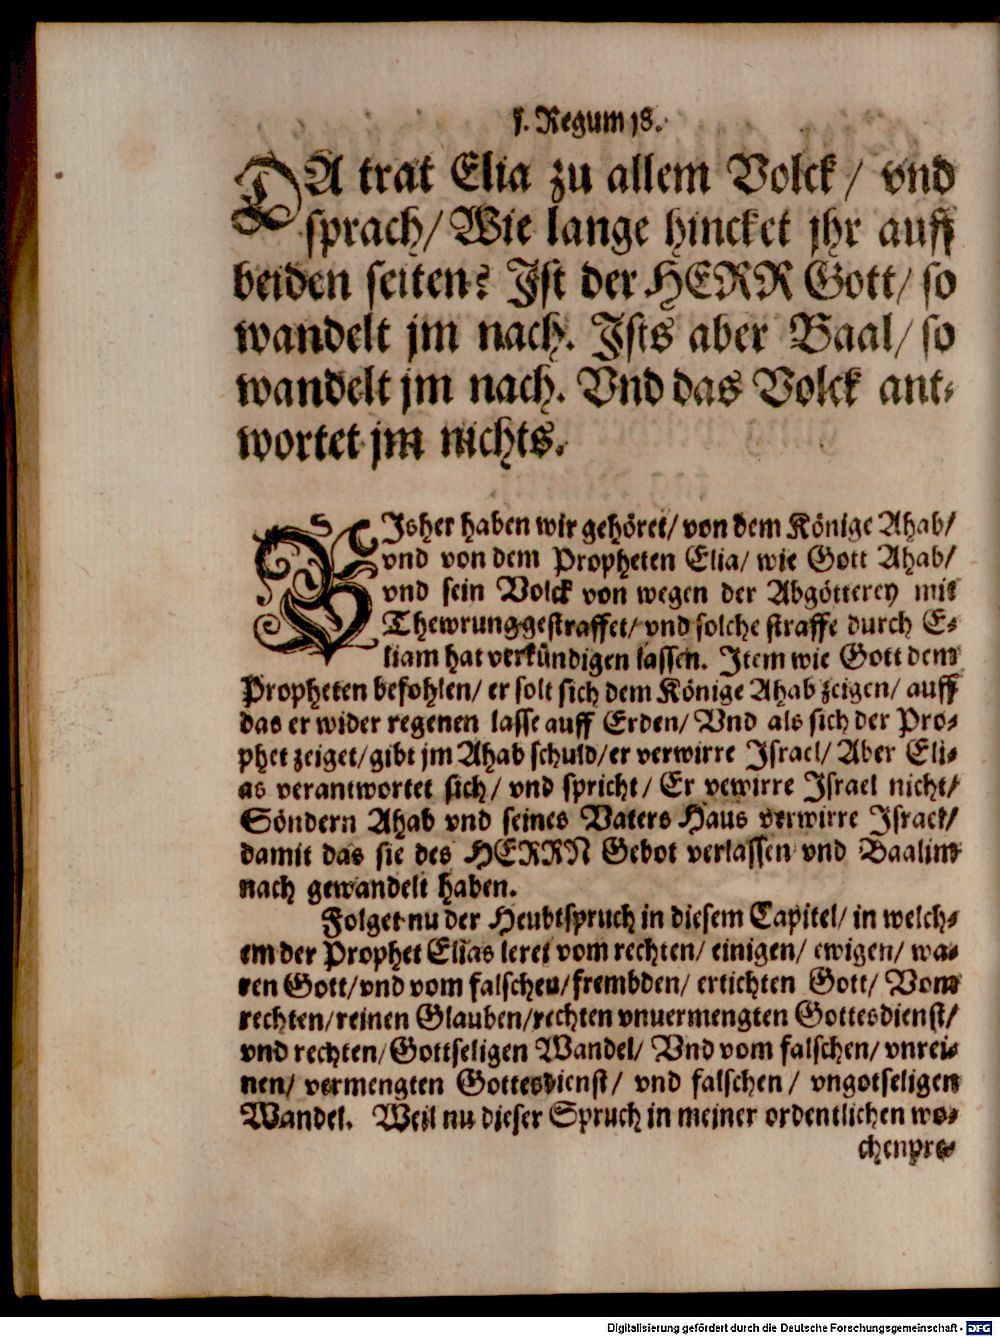 1. Regum 18.
DA trat Elia zu allem Volck / vnd
sprach / Wie lange hincket jhr auff
beiden seiten? Ist der HERR Gott / so
wandelt jm nach. Ists aber Baal / so
wandelt jm nach. Vnd das Volck ant-
wortet jm nichts.
BIsher haben wir gehöret / von dem Könige Ahab /
vnd von dem Propheten Elia / wie Gott Ahab /
vnd sein Volck von wegen der Abgötterey mit
Thewrung gestraffet / vnd solche straffe durch E-
liam hat verkündigen lassen. Item wie Gott dem
Propheten befohlen / er solt sich dem Könige Ahab zeigen / auff
das er wider regenen lasse auff Erden / Vnd als sich der Pro-
phet zeiget / gibt jm Ahab schuld / er verwirre Israel / Aber Eli-
as verantwortet sich / vnd spricht / Er vewirre Israel nicht /
Söndern Ahab vnd seines Vaters Haus verwirre Israel /
damit das sie des HERRN Gebot verlassen vnd Baalim
nach gewandelt haben.
Folget nu der Heubtspruch in diesem Capitel / in welch-
em der Prophet Elias leret vom rechten / einigen / ewigen / wa-
ren Gott / vnd vom falschen / frembden / ertichten Gott / Vom
rechten / reinen Glauben / rechten vnuermengten Gottesdienst /
vnd rechten / Gottseligen Wandel / Vnd vom falschen / vnrei-
nen / vermengten Gottesdienst / vnd falschen / vngotseligen
Wandel. Weil nu dieser Spruch in meiner ordentlichen wo-
chenpre-
Digitalisierung gefördert durch die Deutsche Forschungsgemeinschaft - DFG